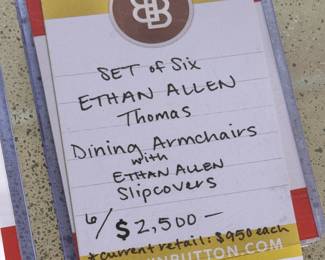 SET of Six
ETHAN ALLEN
Thomas
Dining Armchairs
with
ETHAN ALLEN
Slipcovers
6/$2,500—
*current retail: $950 each
BUTTON.COM